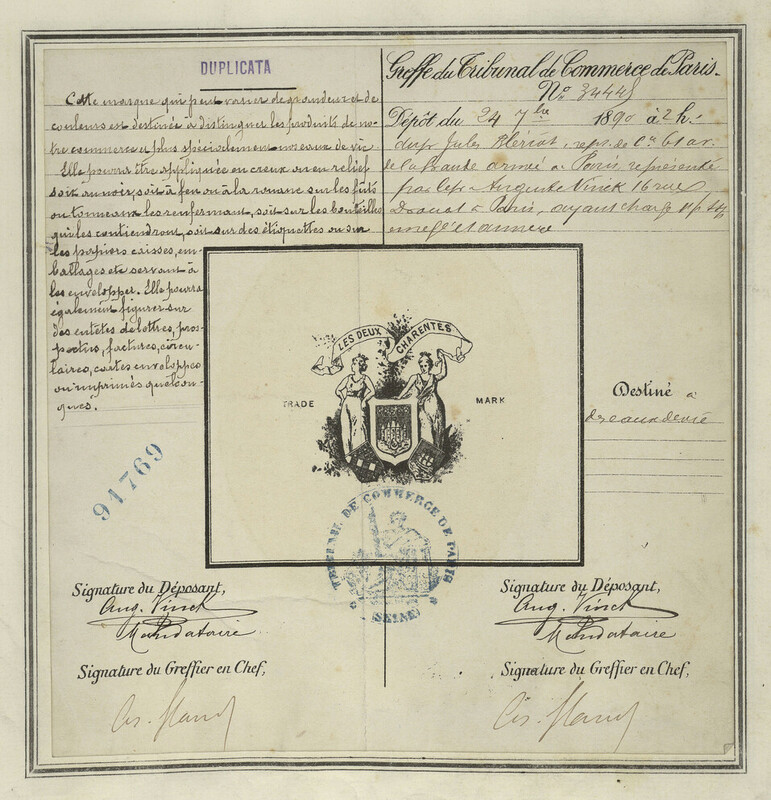 DUPLICATA
Cette marque qui peut varier de grandeur et de
couleurs est destinée à distinguer les produits de no-
tre commerce et plus spécialement nos eaux de vie.
Elle pourra être appliquée en creux ou en relief
soit au noir, soit à feu ou à la rouane sur les fûts
ou tonneaux les renfermant, soit sur les bouteilles
qui les contiendront, soit sur des étiquettes ou sur
les papiers caisses, em-
ballages etc servant à
les envelopper. Elle pourra
également figurer sur
des entêtes de lettres, pros-
pectus, factures, circu-
laires, cartes enveloppes
ou imprimés quelcon-
ques.
94769
Greffe du Tribunal de Commerce de Paris.
No 34445
Dépôt du 24 7bre 1890 à 2 h.
Jules Blériot, repr. de
de la Grande armée à Paris, représenté
par Auguste Vinck 16 rue
Drouot à Paris, ayant charge
LES DEUX CHARENTES
TRADE MARK
Destiné à
des eaux de vie
TRIBUNAL DE COMMERCE DE PARIS
(SEINE)
Signature du Déposant,
Aug. Vinck
Mandataire
Signature du Greffier en Chef,
Signature du Déposant,
Aug. Vinck
Mandataire
Signature du Greffier en Chef,